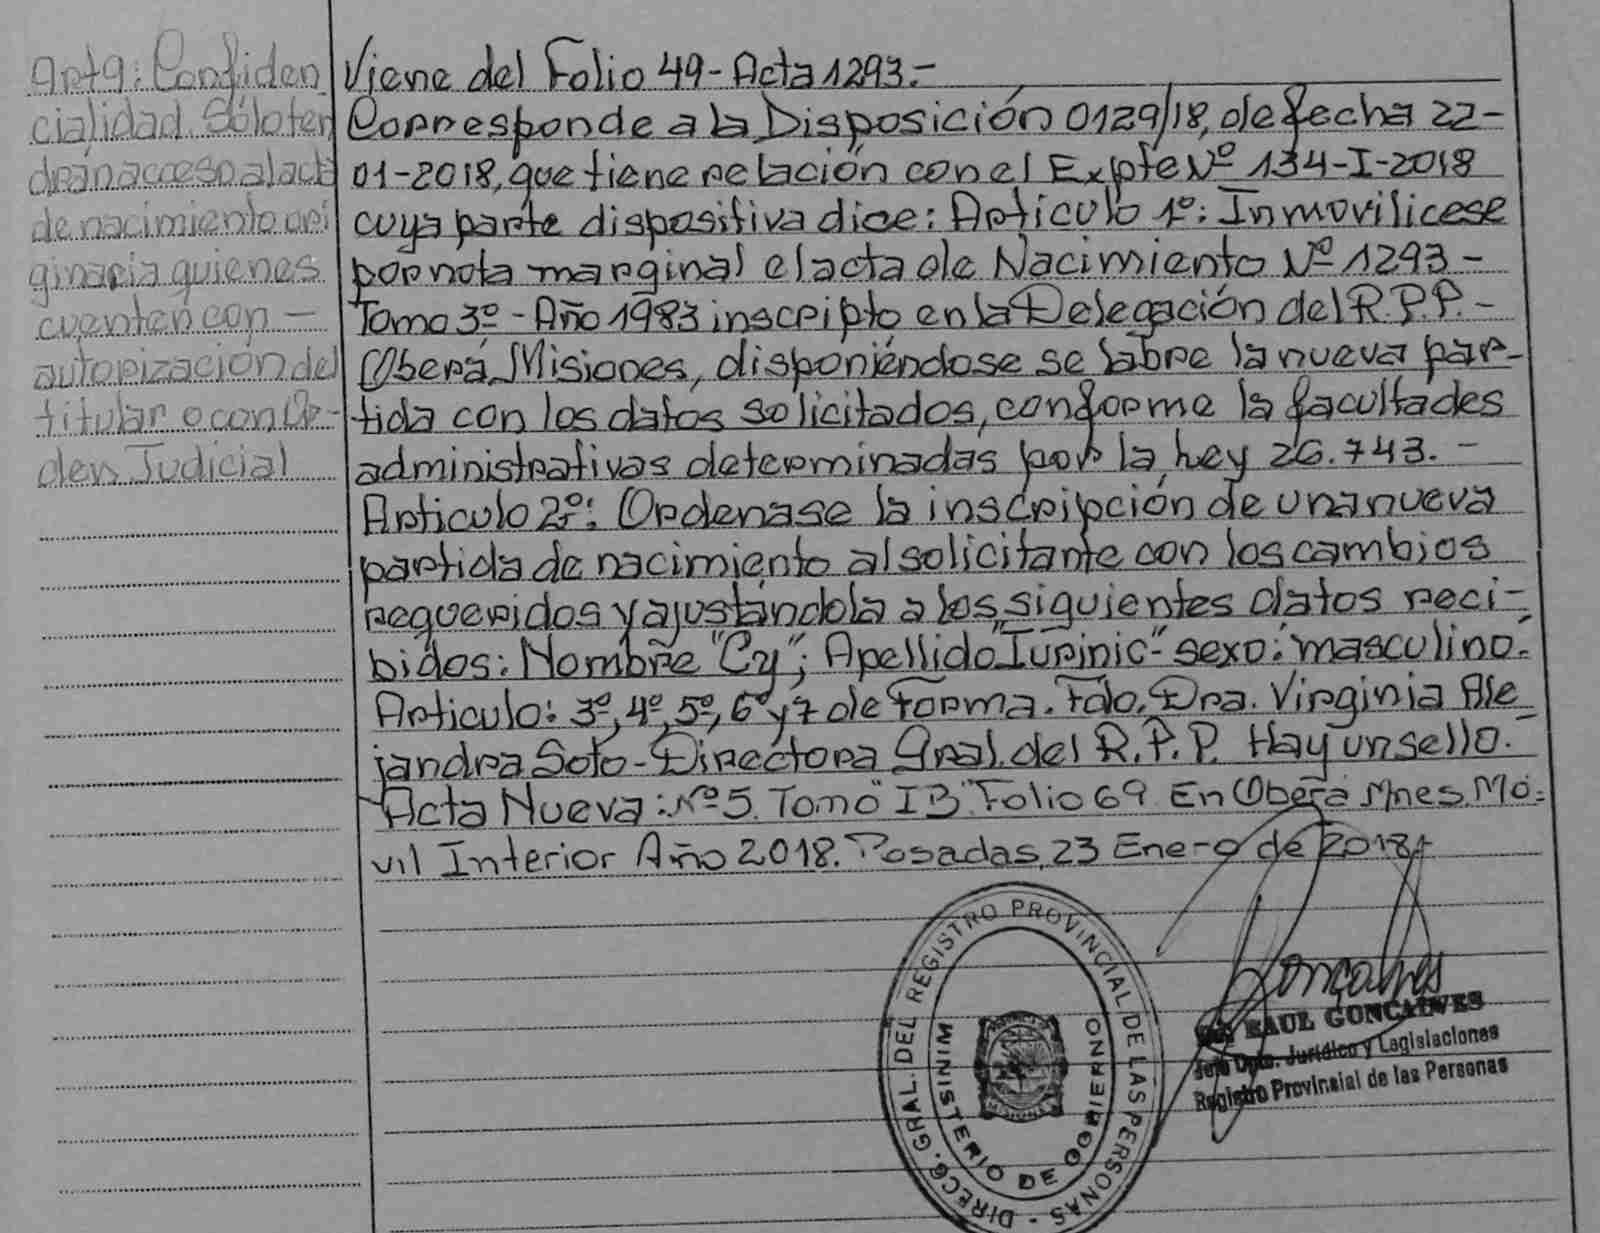 Art 9: Confiden
cialidad. Sólo ten
drán acceso al acta
de nacimiento ori
ginaria quienes
cuenten con —
autorización del
titular o con Or-
den Judicial
Viene del Folio 49 - Acta 1293.-
Corresponde a la Disposición 0129/18, de fecha 22-
01-2018, que tiene relación con el Expte Nº 134-I-2018
cuya parte dispositiva dice: Articulo 1º: Inmovilicese
por nota marginal el acta de Nacimiento Nº 1293 -
Tomo 3º - Año 1983 inscripto en la Delegación del R.P.P. -
Oberá, Misiones, disponiéndose se labre la nueva par-
tida con los datos solicitados, conforme la facultades
administrativas determinadas por la Ley 26.743. -
Articulo 2º: Ordenase la inscripción de una nueva
partida de nacimiento al solicitante con los cambios
requeridos y ajustándola a los siguientes datos reci-
bidos: Nombre "Cy"; Apellido "Iurinic" - sexo: masculino.-
Articulo: 3º, 4º, 5º, 6º y 7 de Forma. Fdo. Dra. Virginia Ale
jandra Soto - Directora Gral. del R.P.P. Hay un sello.-
Acta Nueva: Nº 5. Tomo "IB" Folio 69 En Oberá Mnes. Mó-
vil Interior Año 2018. Posadas, 23 Enero de 2018
DIRECC. GRAL. DEL REGISTRO PROVINCIAL DE LAS PERSONAS -
MINISTERIO DE GOBIERNO
MISIONES
Goncalves
RAUL GONCALVES
Jefe Dpto. Jurídico y Legislaciones
Registro Provincial de las Personas